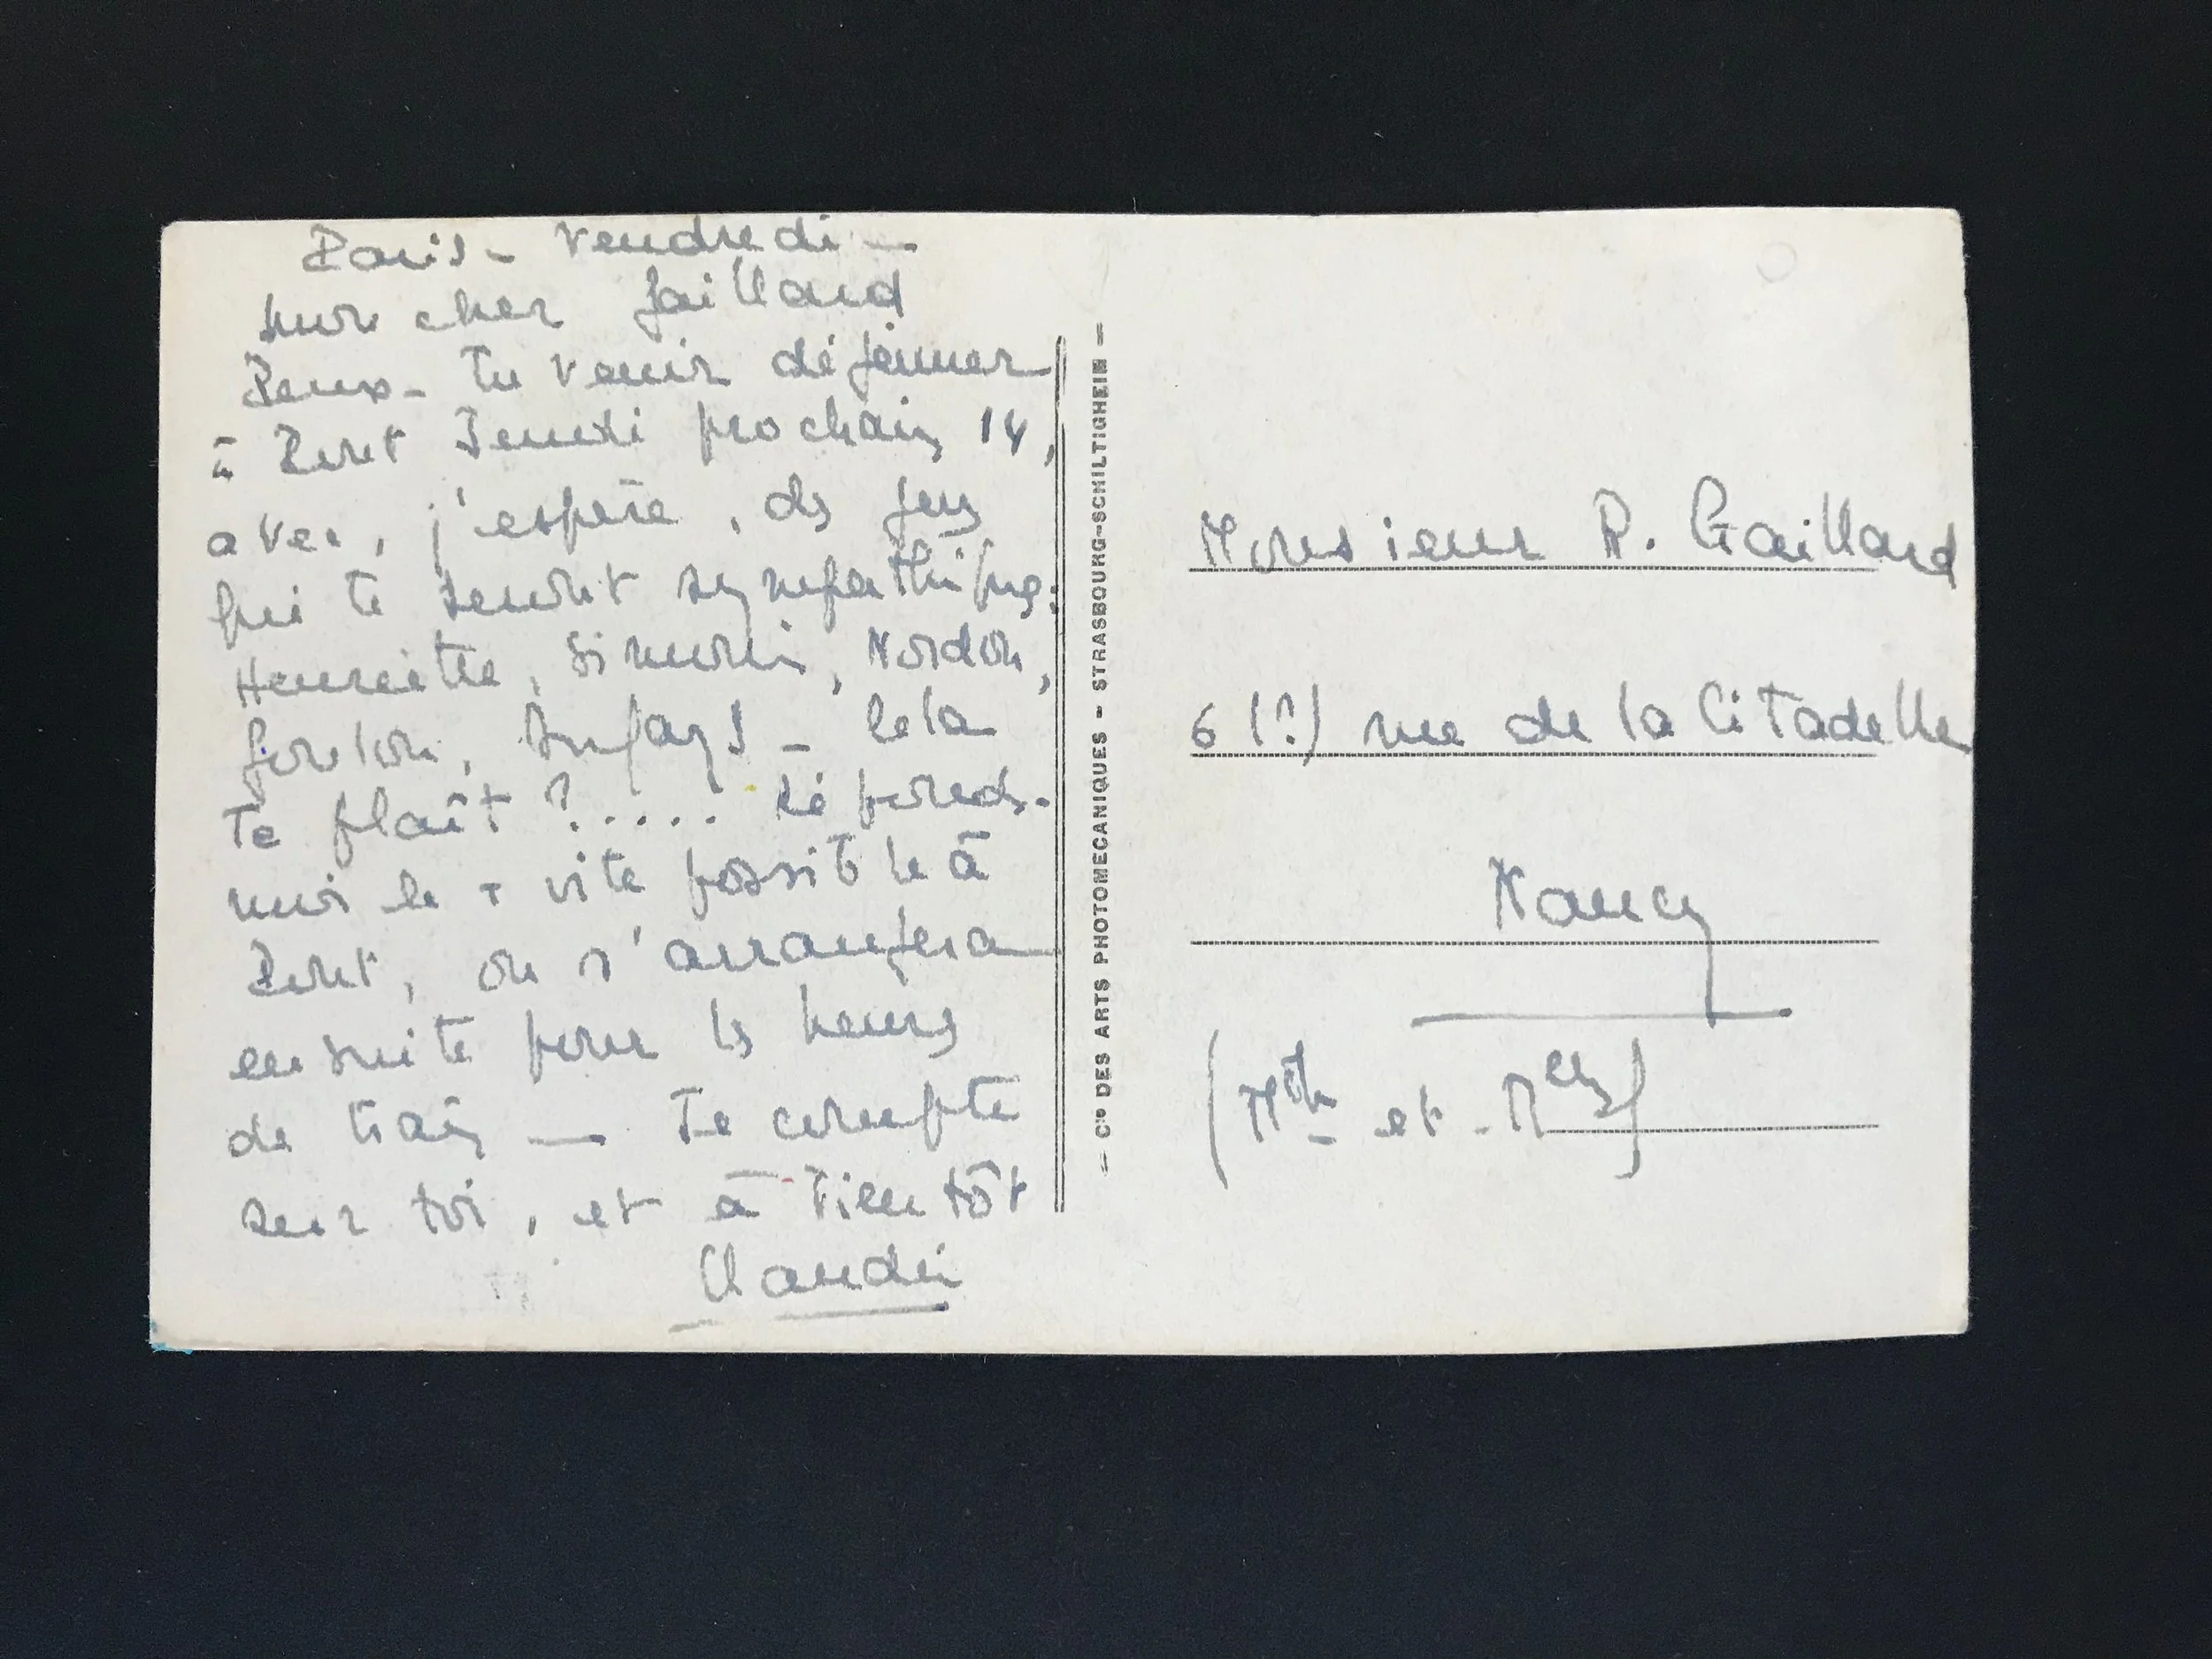 Paris - Vendredi -
mon cher Gaillard
Peux-tu venir déjeuner
à Pont Jeudi prochain 14,
avec, j'espère, des gens
qui te seront sympathiques:
Henriette, Simonin, Nordon,
Goulon, - Cela
te plaît ?..... Réponds-
moi le + vite possible à
Pont, on s'arrangera
ensuite pour les heures
de train — Je compte
sur toi, et à bientôt
Claude
— Cie DES ARTS PHOTOMECANIQUES - STRASBOURG-SCHILTIGHEIM —
Monsieur R. Gaillard
6 (?) rue de la Citadelle
Nancy
(Mthe et Mlle)